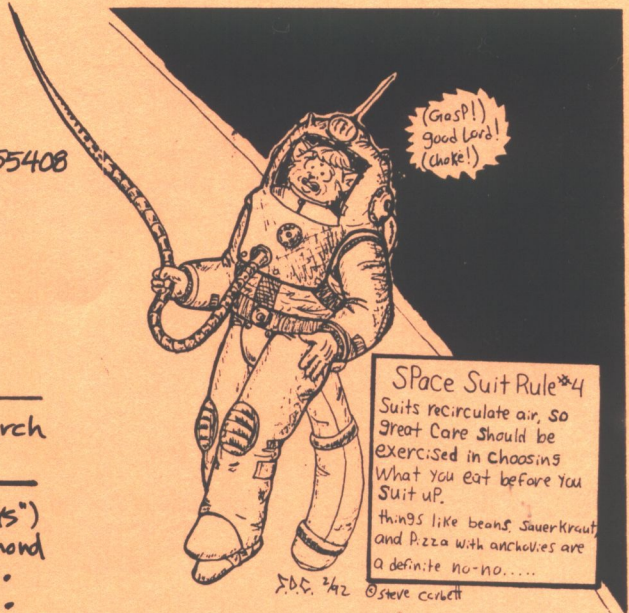 55408
rch
ys")
mond
(GasP!)
good Lord!
(choke!)
SPace Suit Rule #4
Suits recirculate air, so
great Care should be
exercised in choosing
What you eat before you
Suit uP.
things like beans, Sauerkraut,
and Pizza with anchovies are
a definite no-no.....
S.D.C. 2/92 © Steve Corbett